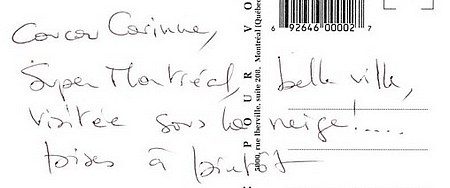 Coucou Corinne,
Super Montréal, belle ville,
visitée sous la neige!.....
bises à bientôt
6 92646 00002 7
POUR VO
3000, rue Iberville, suite 200, Montréal (Québec